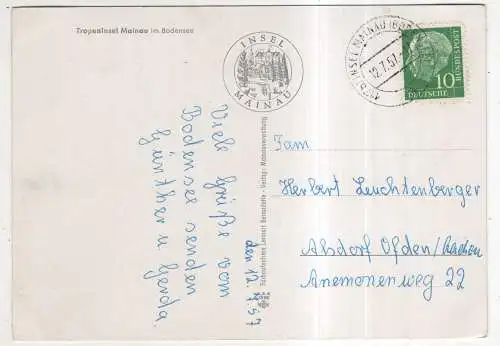 Tropeninsel Mainau im Bodensee
INSEL
MAINAU
INSEL MAINAU
12.7.57
10
DEUTSCHE
BUNDESPOST
Viele Grüße vom
Bodensee senden
Günther u Gerda.
den 12.7.57
Lennart Bernadotte - Verlag: Mainauverwaltung
Fam
Herbert Leuchtenberger
Alsdorf Ofden/Aachen
Anemonenweg 22